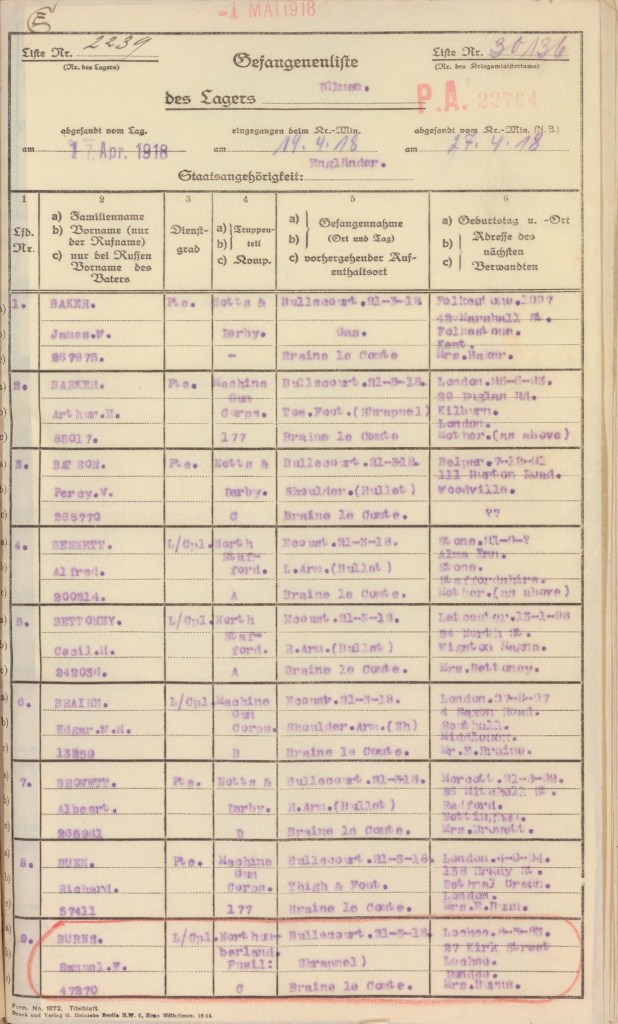 -1 MAI 1918
Liste Nr. 2239
(Nr. des Lagers)
Gefangenenliste
Liste Nr. 30136
(Nr. des Kriegsministeriums)
des Lagers
P.A. 22764
abgesandt vom Lag.
am 17 Apr. 1918
eingegangen beim Kr.-Min.
am 19.4.18
abgesandt vom Kr.-Min. (N.B.)
am 27.4.18
Staatsangehörigkeit: Engländer.
1 2 3 4 5 6
Lfd. Nr.
a) Familienname
b) Vorname (nur der Rufname)
c) nur bei Russen Vorname des Vaters
Dienstgrad
a) b) Truppenteil
c) Komp.
a) b) Gefangennahme (Ort und Tag)
c) vorhergehender Aufenthaltsort
a) Geburtstag u. -Ort
b) c) Adresse des nächsten Verwandten
1. BAKER. Pte. Notts & Bullecourt.21-3-18 Folkestone.1897
Marshall St.
James.W. Derby. Gas. Folkestone.
Kent.
267975. - Braine le Comte Mrs.Baker.
2. BARKER. Pte. Machine Bullecourt.21-3-18. London.
Gun
Arthur.H. Corps. Toe.Foot.(Shrapnel) Kilburn.
London.
177 Braine le Comte Mother.(as above)
3. Pte. Notts & Bullecourt.21-3-18.
111 Burton Road.
Percy.V. Derby. Shoulder.(Bullet) Woodville.
265770 C Braine le Comte. ??
4. BENNETT. L/Cpl. North Ecoust.21-3-18. Stone.
Staf-
Alfred. ford. L.Arm.(Bullet) Stone.
Staffordshire.
200214. A Braine le Comte. Mother.(as above)
5. L/Cpl. North Ecoust.21-3-18. Leicester.13-1-98
Staf- 24 North St.
Cecil.H. ford. R.Arm.(Bullet) Wigston Magna.
242036. A Braine le Comte. Mrs.Bettoney.
6. L/Cpl. Machine Ecoust.21-3-18. London.
Gun 4 Saxon Road.
Edgar.W.H. Corps. Shoulder.Arm.(Sh) Southall.
Middlesex.
B Braine le Comte.
7. Pte. Notts & Bullecourt.21-3-18. Morcott.
Albert. Derby. R.Arm.(Bullet) Radford.
Nottingham.
D Braine le Comte.
8. BUNN. Pte. Machine Bullecourt.21-3-18. London.
Gun
Richard. Corps. Thigh & Foot. Bethnal Green.
London.
57411 177 Braine le Comte. Mrs.R.Bunn.
9. BURNS. L/Cpl. Northum- Bullecourt.21-3-18. Lochee.
berland 27 Kirk Street
Samuel.F. Fusil: Shrapnel) Lochee.
Dundee.
47270 C Braine le Comte. Mrs.Burns.
Form. No. 1872. Titelblatt.